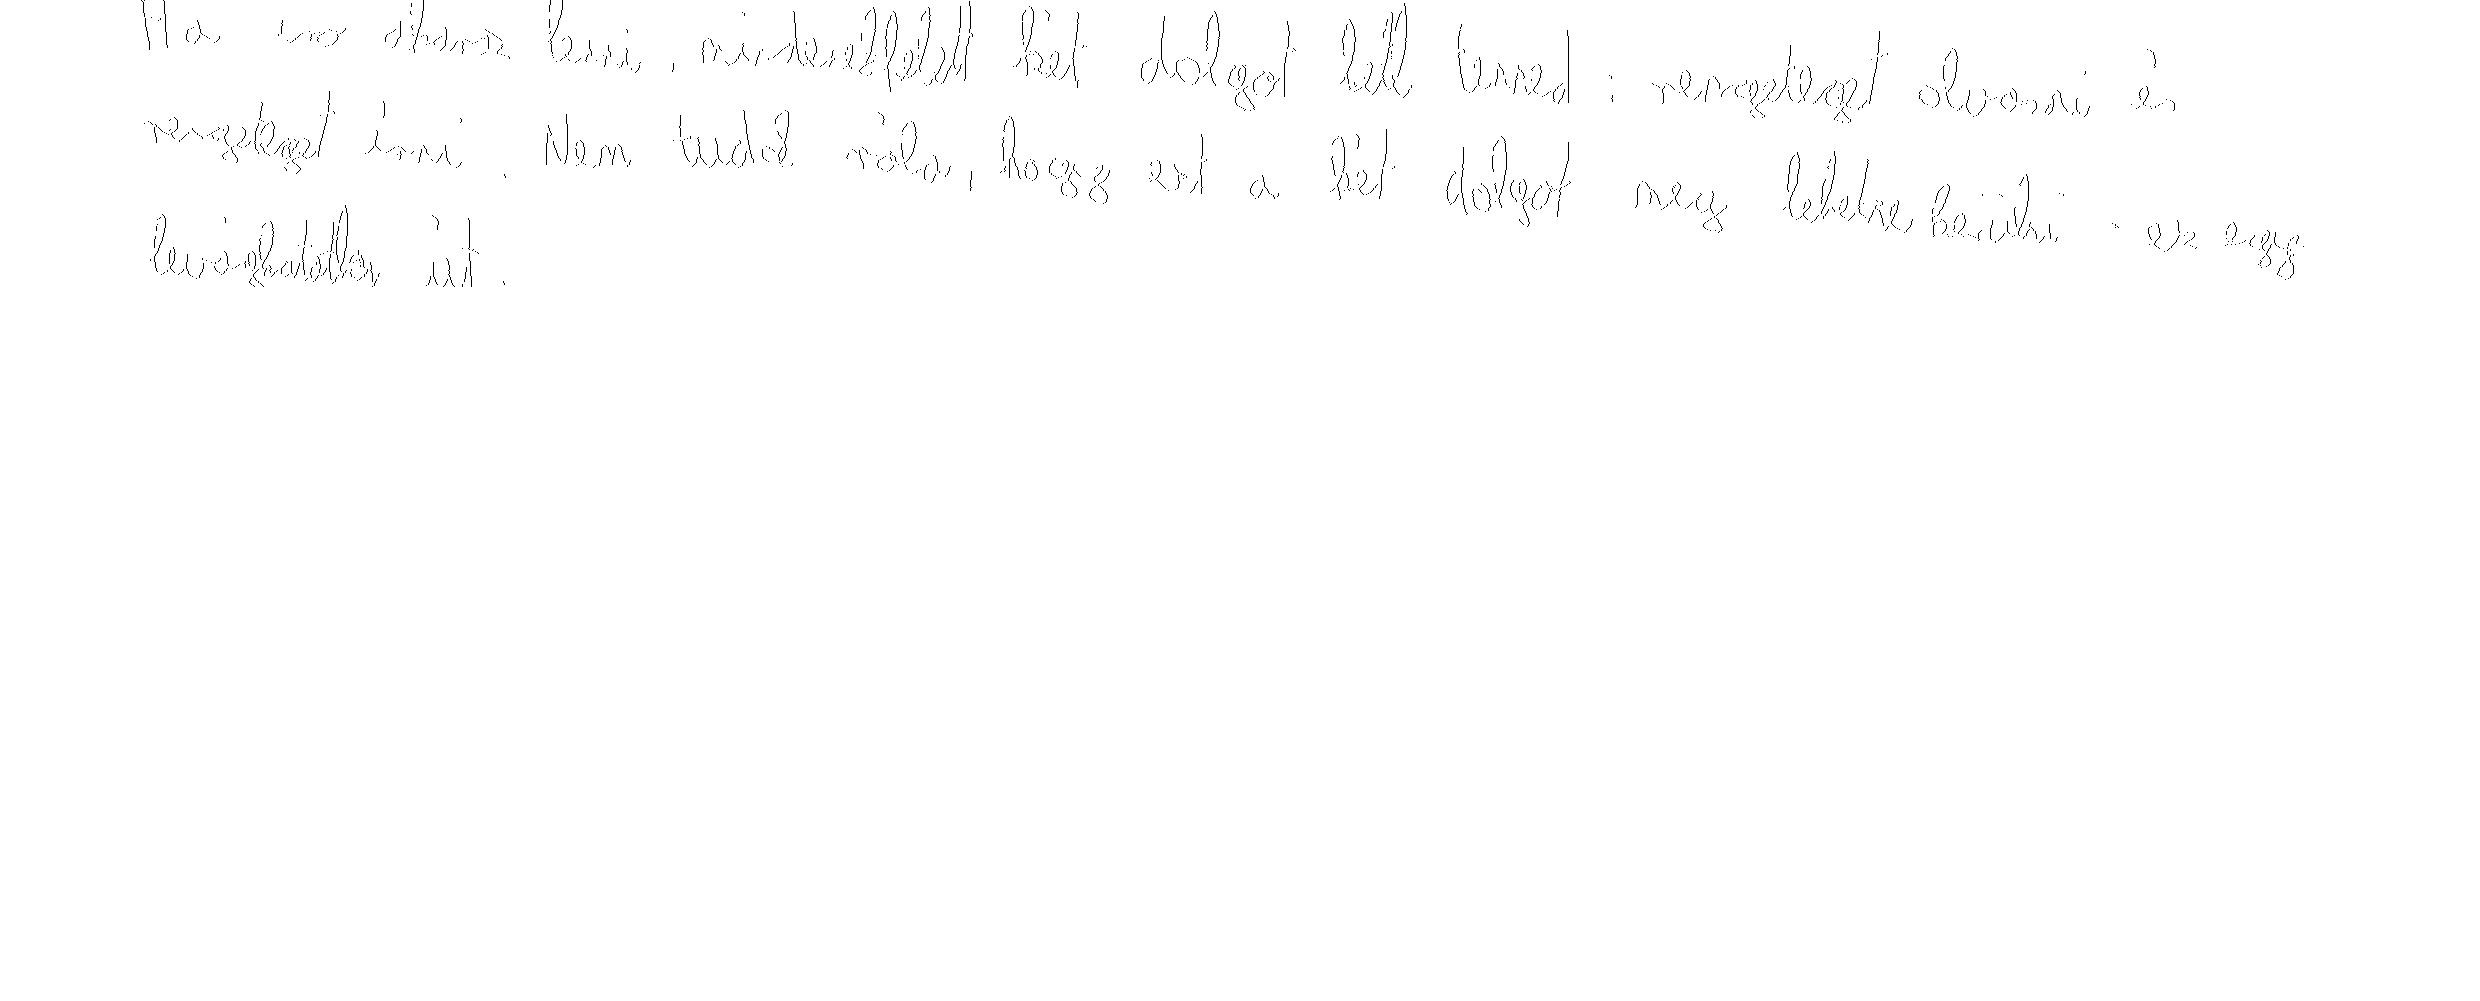 Ha író akarsz lenni, mindenekfelett két dolgot kell tenned: rengeteget olvasni és
rengeteget írni. Nem tudok róla, hogy ezt a két dolgot meg lehetne kerülni - ez egy
levághatatlan út.